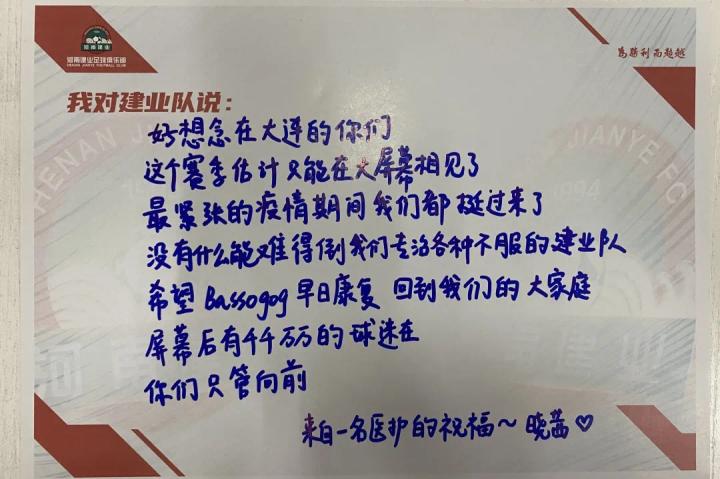 河南建业
河南建业足球俱乐部
HENAN JIANYE FOOTBALL CLUB
为胜利而超越
我对建业队说：
好想念在大连的你们
这个赛季估计只能在大屏幕相见了
最紧张的疫情期间我们都挺过来了
没有什么能难得倒我们专治各种不服的建业队
希望Bassogog早日康复 回到我们的大家庭
屏幕后有千千万万的球迷在
你们只管向前
来自一名医护的祝福～晓茜♡
HENAN JIANYE FC
1994
河南建业